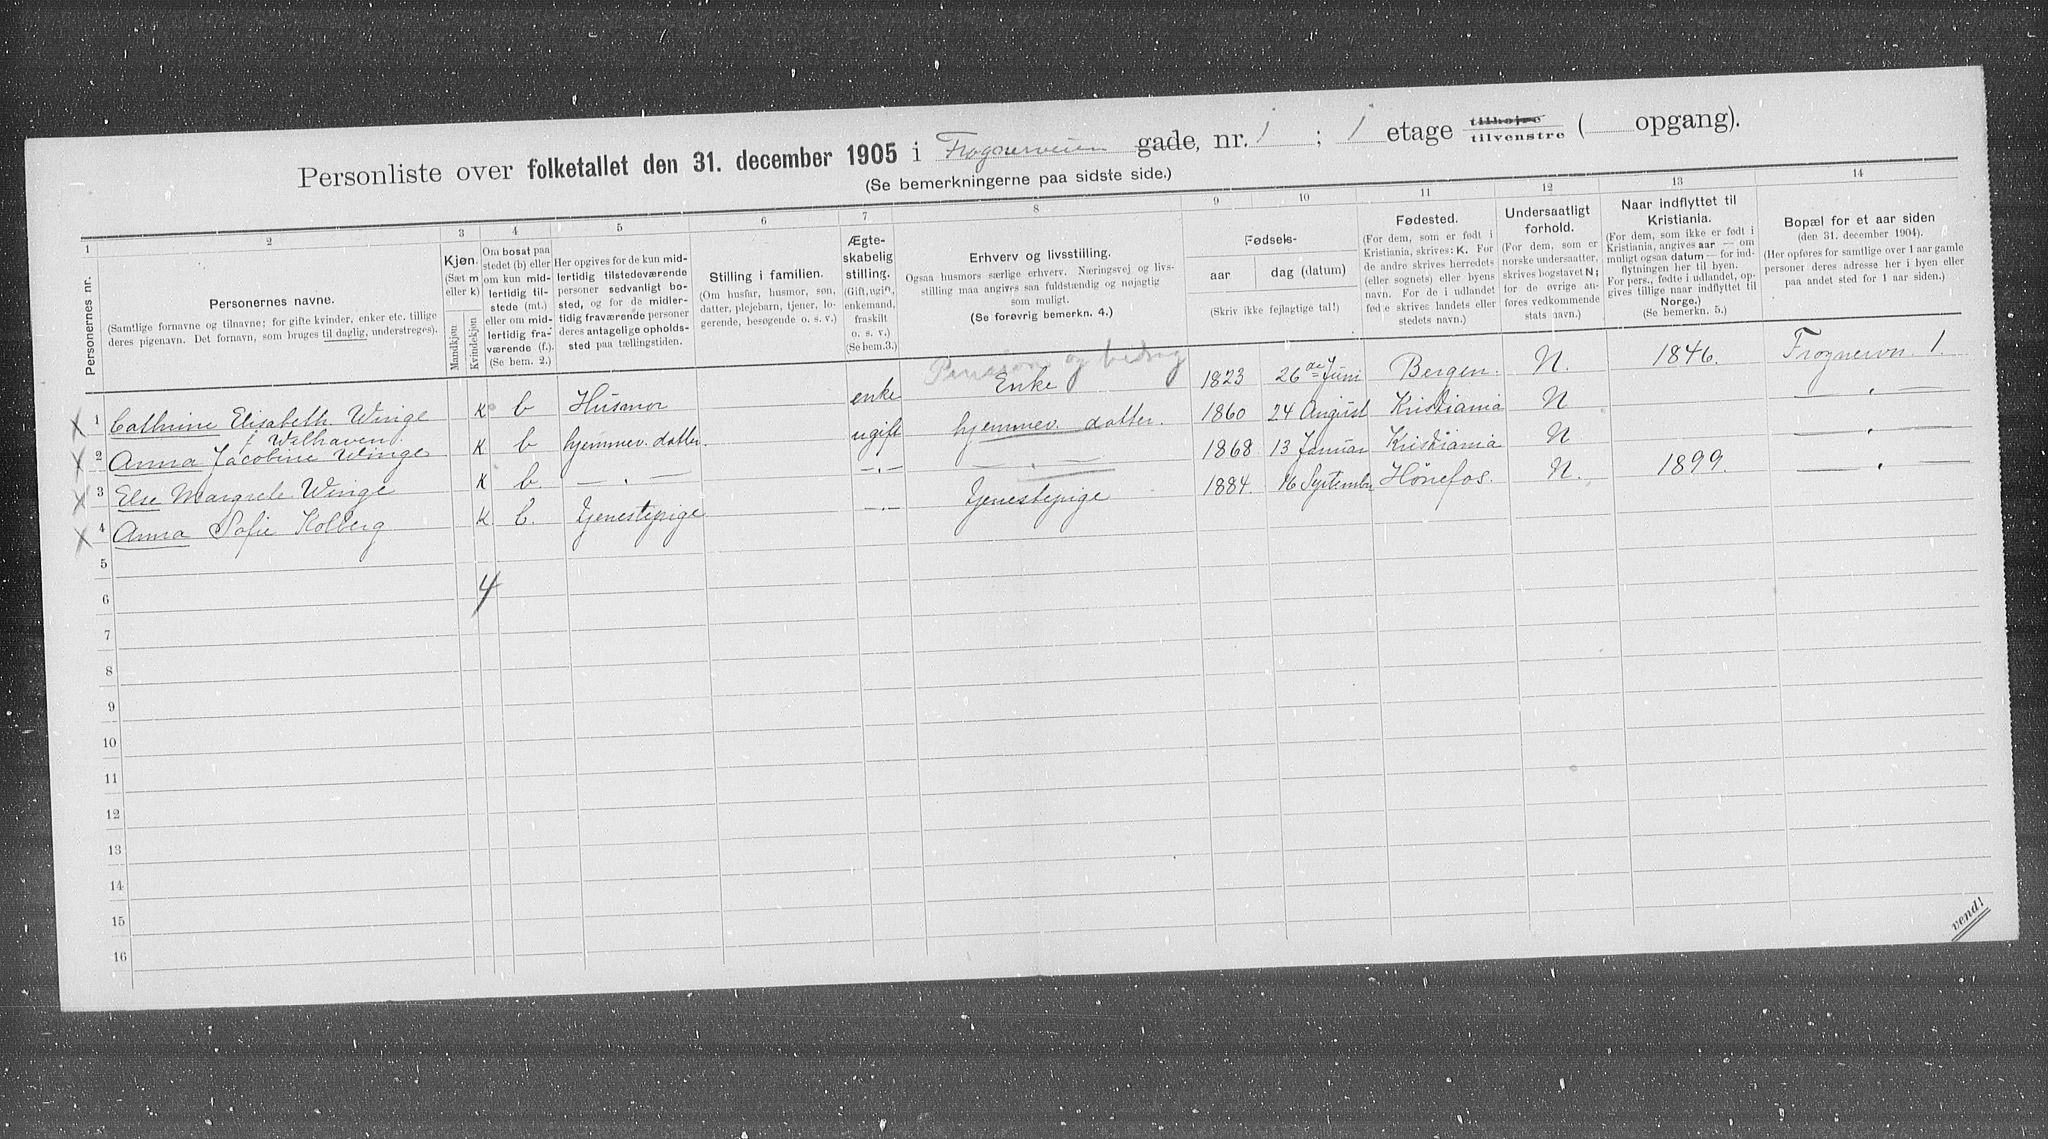 Personliste over folketallet den 31. december 1905 i Frognerveien gade, nr. 1 ; 1 etage tilhøjre tilvenstre ( opgang).
(Se bemerkningerne paa sidste side.)
1 2 3 4 5 6 7 8 9 10 11 12 13 14
Personernes nr.
Personernes navne.
(Samtlige fornavne og tilnavne; for gifte kvinder, enker etc. tillige
deres pigenavn. Det fornavn, som bruges til daglig, understreges).
Kjøn.
(Sæt m
eller k)
Mandkjøn
Kvindekjøn
Om bosat paa
stedet (b) eller
om kun mid-
lertidig til-
stede (mt.)
eller om mid-
lertidig fra-
værende (f.).
(Se bem. 2.)
Her opgives for de kun mid-
lertidig tilstedeværende
personer sedvanligt bo-
sted, og for de midler-
tidig fraværende personer
deres antagelige opholds-
sted paa tællingstiden.
Stilling i familien.
(Om husfar, husmor, søn,
datter, plejebarn, tjener, lo-
gerende, besøgende o. s. v.)
Ægte-
skabelig
stilling.
(Gift, ugift,
enkemand,
fraskilt
o. s. v.)
(Se bem.3.)
Erhverv og livsstilling.
Ogsaa husmors særlige erhverv. Næringsvej og livs-
stilling maa angives saa fuldstændig og nøjagtig
som muligt.
(Se forøvrig bemerkn. 4.)
Fødsels-
aar dag (datum)
(Skriv ikke fejlagtige tal!)
Fødested.
(For dem, som er født i
Kristiania, skrives: K. For
de andre skrives herredets
(eller sognets) eller byens
navn. For de i udlandet
fødte skrives landets eller
stedets navn.)
Undersaatligt
forhold.
(For dem, som er
norske undersaatter,
skrives bogstavet N;
for de øvrige an-
føres vedkommende
stats navn.)
Naar indflyttet til
Kristiania.
(For dem, som ikke er født i
Kristiania, angives aar — om
muligt ogsaa datum — for ind-
flytningen her til byen.
For pers., fødte i udlandet, op-
gives tillige naar indflyttet til
Norge.)
(Se bemerkn. 5.)
Bopæl for et aar siden
(den 31. december 1904).
(Her opføres for samtlige over 1 aar gamle
personer deres adresse her i byen eller
paa andet sted for 1 aar siden.)
Pension og bidrag
X 1 Cathrine Elisabeth Winge K b Husmor enke Enke 1823 26de Juni Bergen. N. 1846. Frognervn. 1.
f. Welhaven.
X 2 Anna Jacobine Winge K b hjemmev. datter. ugift hjemmev. datter. 1860 24 August Kristiania N — . —
X 3 Else Margrete Winge K b — . — — . — — . — 1868 13 Januar Kristiania N — . —
X 4 Anna Sofie Kolberg K b. tjenestepige — . — tjenestepige 1884. 16 September Hönefos. N. 1899. — . —
5
6 4
7
8
9
10
11
12
13
14
15
16
vend!